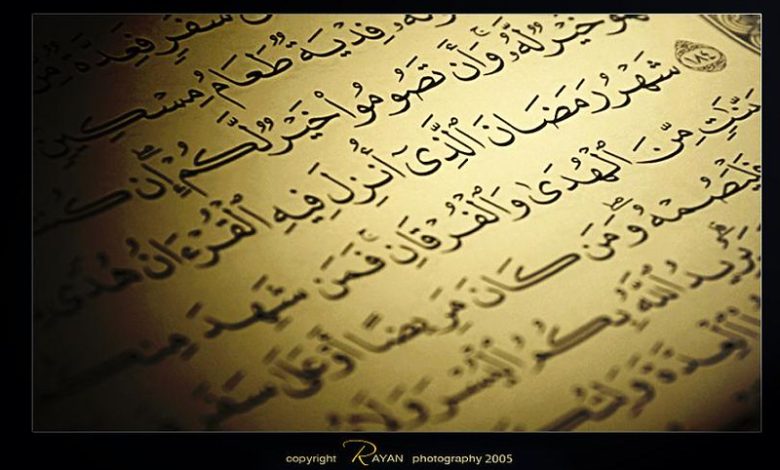 سَفَرٍ فَعِدَّةٌ مِّنْ
فِدْيَةٌ طَعَامُ مِسْكِينٍ
خَيْرٌ لَّهُۥ وَأَن تَصُومُوا۟ خَيْرٌ لَّكُمْ إِن كُنـ
١٨٤ شَهْرُ رَمَضَانَ ٱلَّذِىٓ أُنزِلَ فِيهِ ٱلْقُرْءَانُ هُدًى
بَيِّنَٰتٍ مِّنَ ٱلْهُدَىٰ وَٱلْفُرْقَانِ فَمَن شَهِدَ مِنكُـ
فَلْيَصُمْهُ وَمَن كَانَ مَرِيضًا أَوْ عَلَىٰ سَفَرٍ
يُرِيدُ ٱللَّهُ بِكُمُ ٱلْيُسْرَ وَلَا
ٱلْعِدَّةَ
copyright RAYAN photography 2005